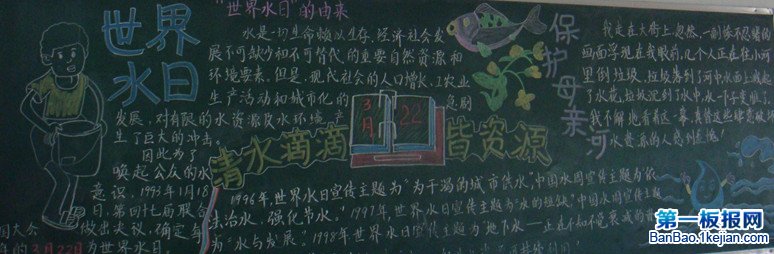 世界
水日
"世界水日"的由来
水是一切生命赖以生存、经济社会发
展不可缺少和不可替代的重要自然资源和
环境要素。但是，现代社会的人口增长、工农业
生产活动和城市化的急剧
发展，对有限的水资源及水环境产
生了巨大的冲击。
因此为了
唤起公众的水
意识，1993年1月18
日，第四十七届联合
国大会做出决议，确定每
年的3月22日为世界水日。
3月
22
清水滴滴皆资源
1996年世界水日宣传主题为"为干渴的城市供水"中国水周宣传主题为依
法治水，强化节水。"1997年世界水日宣传主题为"水的短缺"中国水周宣传主题
为"水与发展。"1998年世界水日宣传主题为"地下水——正在不知不觉衰减的
保护母亲河
我走在大街上，忽然，一副惨不忍睹的
画面浮现在我眼前，几个人正在往小河
里倒垃圾，垃圾落到了河中水面上溅起
了水花，垃圾沉到了水中，水一下子变脏了。
我不解地看着这一幕，真替这些肆意破坏
水资源的人感到羞愧！
第一板报网
BanBao.1kejian.com